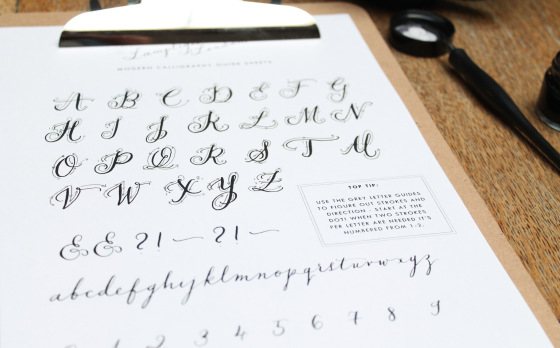 MODERN CALLIGRAPHY GUIDE SHEETS
A B C D E F G
H I J K L M N
O P Q R S T U
V W X Y Z
TOP TIP:
USE THE GREY LETTER GUIDES
TO FIGURE OUT STROKES AND
DIRECTION - START AT THE
DOT! WHEN TWO STROKES
PER LETTER ARE NEEDED IT'S
NUMBERED FROM 1-2.
& & ?! — ?! —
abcdefghijklmnopqrstuvwxyz
2 3 4 5 6 7 8 9